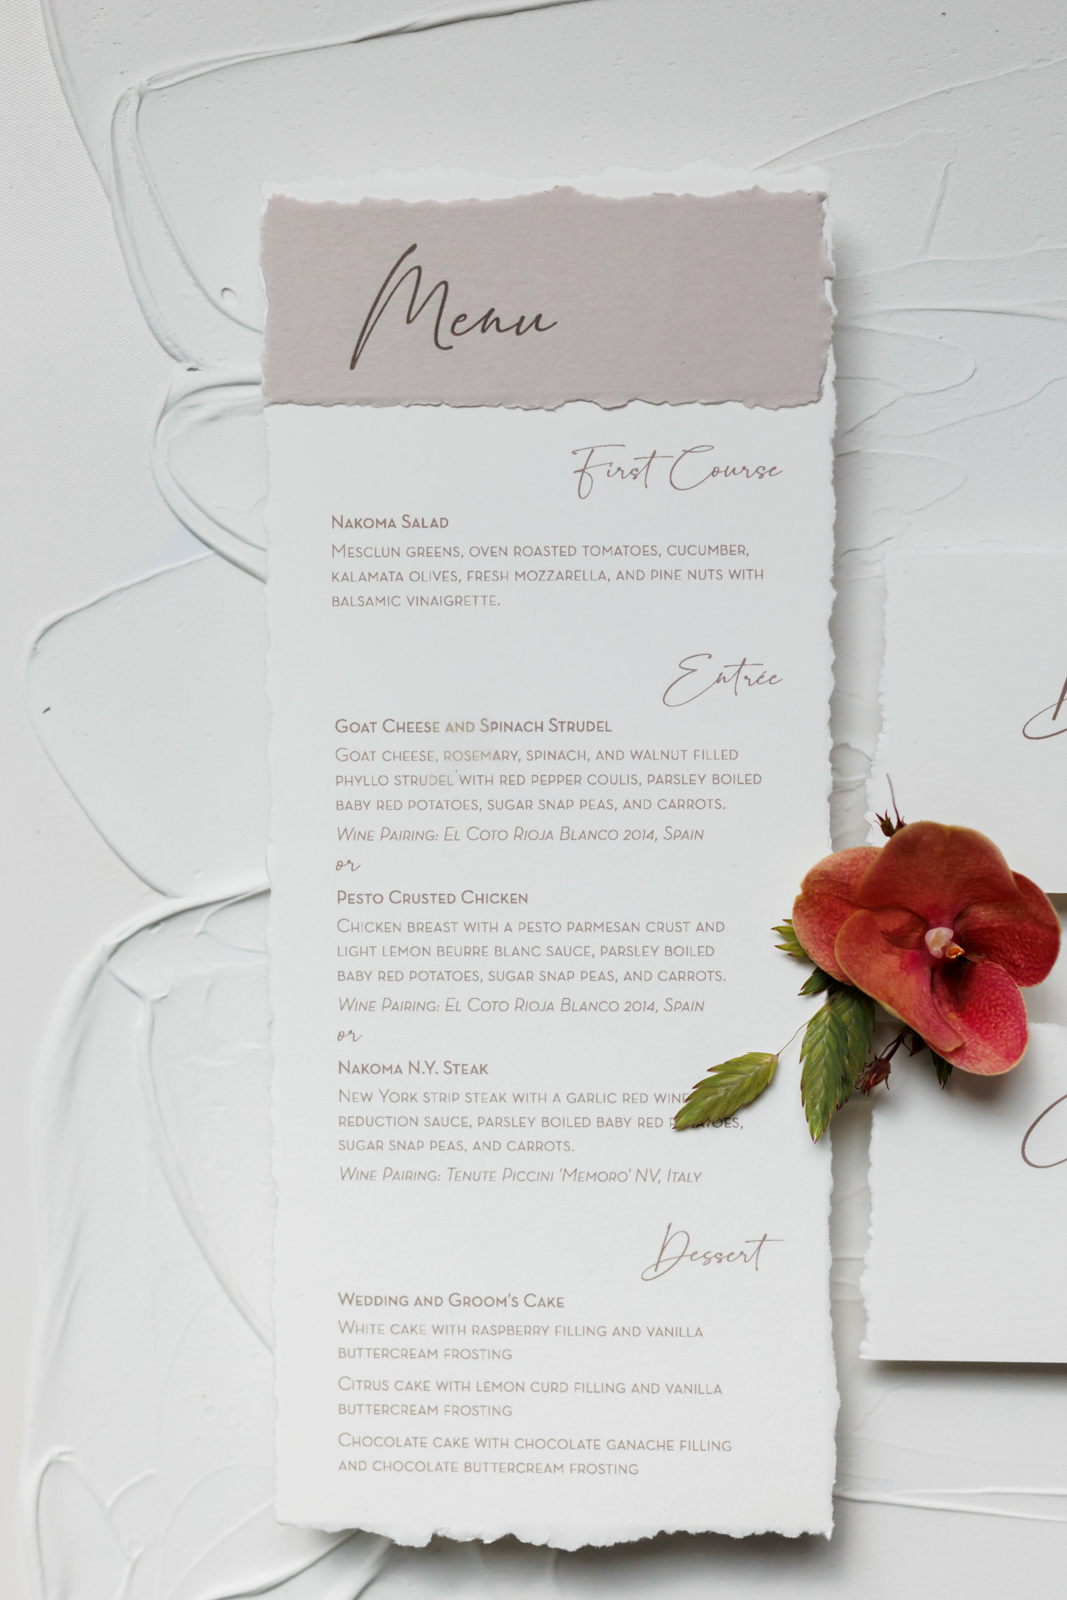 Menu
First Course
Nakoma Salad
Mesclun greens, oven roasted tomatoes, cucumber,
kalamata olives, fresh mozzarella, and pine nuts with
balsamic vinaigrette.
Entrée
Goat Cheese and Spinach Strudel
Goat cheese, rosemary, spinach, and walnut filled
phyllo strudel with red pepper coulis, parsley boiled
baby red potatoes, sugar snap peas, and carrots.
Wine Pairing: El Coto Rioja Blanco 2014, Spain
or
Pesto Crusted Chicken
Chicken breast with a pesto parmesan crust and
light lemon beurre blanc sauce, parsley boiled
baby red potatoes, sugar snap peas, and carrots.
Wine Pairing: El Coto Rioja Blanco 2014, Spain
or
Nakoma N.Y. Steak
New York strip steak with a garlic red wine
reduction sauce, parsley boiled baby red potatoes,
sugar snap peas, and carrots.
Wine Pairing: Tenute Piccini 'Memoro' NV, Italy
Dessert
Wedding and Groom's Cake
White cake with raspberry filling and vanilla
buttercream frosting
Citrus cake with lemon curd filling and vanilla
buttercream frosting
Chocolate cake with chocolate ganache filling
and chocolate buttercream frosting